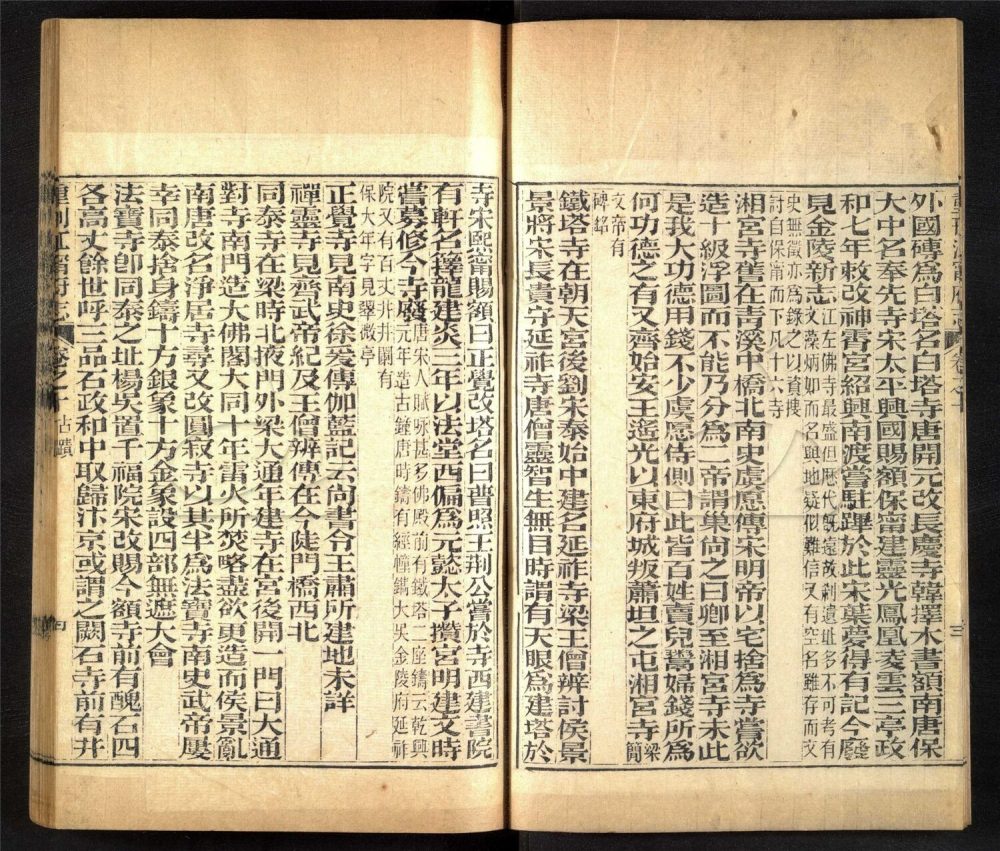 外國磚為白塔名白塔寺唐開元改長慶寺韓擇木書額南唐保
大中名奉先寺宋太平興國賜額保甯建靈光鳳凰凌雲三亭政
和七年敕改神霄宮紹興南渡嘗駐蹕於此宋葉夢得有記今廢
見金陵新志江左佛寺最盛但歷代旣遠故剎遺址多不可考有
文藻炳如而名與地疑似難信又有空名雖存而文
史無徵亦為錄之以資搜
討自保甯而下凡十六寺
湘宮寺舊在青溪中橋北南史虞愿傳宋明帝以宅捨為寺嘗欲
造十級浮圖而不能乃分為二帝謂巢尙之曰卿至湘宮寺未此
是我大功德用錢不少虞愿侍側曰此皆百姓賣兒鬻婦錢所為
何功德之有又齊始安王遙光以東府城叛蕭坦之屯湘宮寺梁
簡
文帝有
碑銘
鐵塔寺在朝天宮後劉宋泰始中建名延祚寺梁王僧辨討侯景
景將宋長貴守延祚寺唐僧靈智生無目時謂有天眼為建塔於
卷之十
三
寺宋熙甯賜額曰正覺改塔名曰普照王荆公嘗於寺西建書院
有軒名籜龍建炎三年以法堂西偏為元懿太子攢宮明建文時
嘗募修今寺廢唐宋人賦咏甚多佛殿前有鐵塔二座鑄云乾興
元年造古鐘唐時鑄有經幢鐫大吳金陵府延祚
院又有百丈井井闌有
保大年字見翠微亭
正覺寺見南史徐發傳伽藍記云尙書令王肅所建地未詳
禪靈寺見齊武帝紀及王僧辨傳在今陡門橋西北
同泰寺在梁時北掖門外梁大通年建寺在宮後開一門曰大通
對寺南門造大佛閣大同十年雷火所焚略盡欲更造而侯景亂
南唐改名淨居寺尋又改圓寂寺以其半為法寶寺南史武帝屢
幸同泰捨身鑄十方銀象十方金象設四部無遮大會
法寶寺卽同泰之址楊吳置千福院宋改賜今額寺前有醜石四
各高丈餘世呼三品石政和中取歸汴京或謂之闕石寺前有井
重刊江甯府志
卷之十
古蹟
四